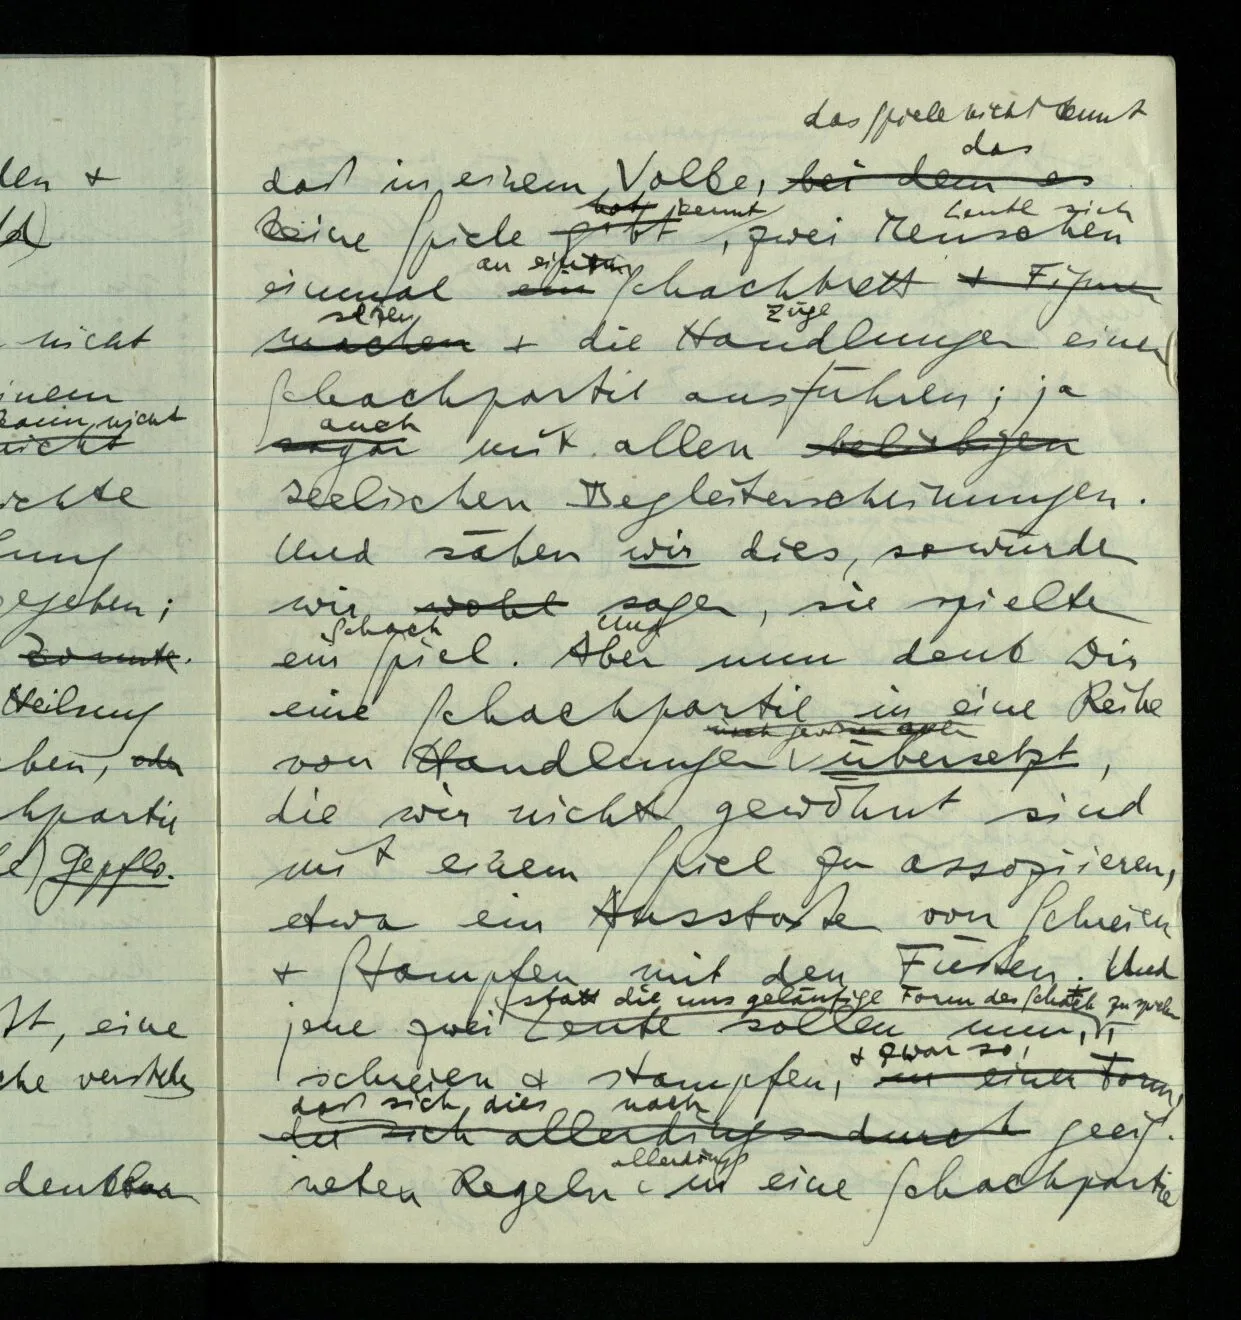 den +
nicht
einem
kann nicht
nicht
gegeben;
Heilung
ben, oder
hpartie
Gepflo.
st, eine
che verstehe
das Spiele nicht kennt
das
daß in einem Volke, bei dem es
hat kennt Leute sich
keine Spiele gibt, zwei Menschen
an ein
einmal ein Schachbrett + Figuren
setzen Züge
machen + die Handlungen einer
Schachpartie ausführen; ja
auch
sogar mit allen beliebigen
seelischen Begleiterscheinungen.
Und sähen wir dies, so würde
wir wohl sagen, sie spielte
Schach Und
ein Spiel. Aber nun denk Dir
eine Schachpartie in eine Reihe
nach gewissen
von Handlungen übersetzt,
die wir nicht gewöhnt sind
mit einem Spiel zu assoziieren,
etwa ein Ausstoße von Schreien
+ Stampfen mit den Füßen. Und
statt die uns geläufige Form des Schach zu spielen
jene zwei Leute sollen nun,
+ zwar so,
schreien + stampfen, in einer Form,
daß sich dies nach
die sich allerdings durch geeig-
allerdings
neten Regeln in eine Schachpartie